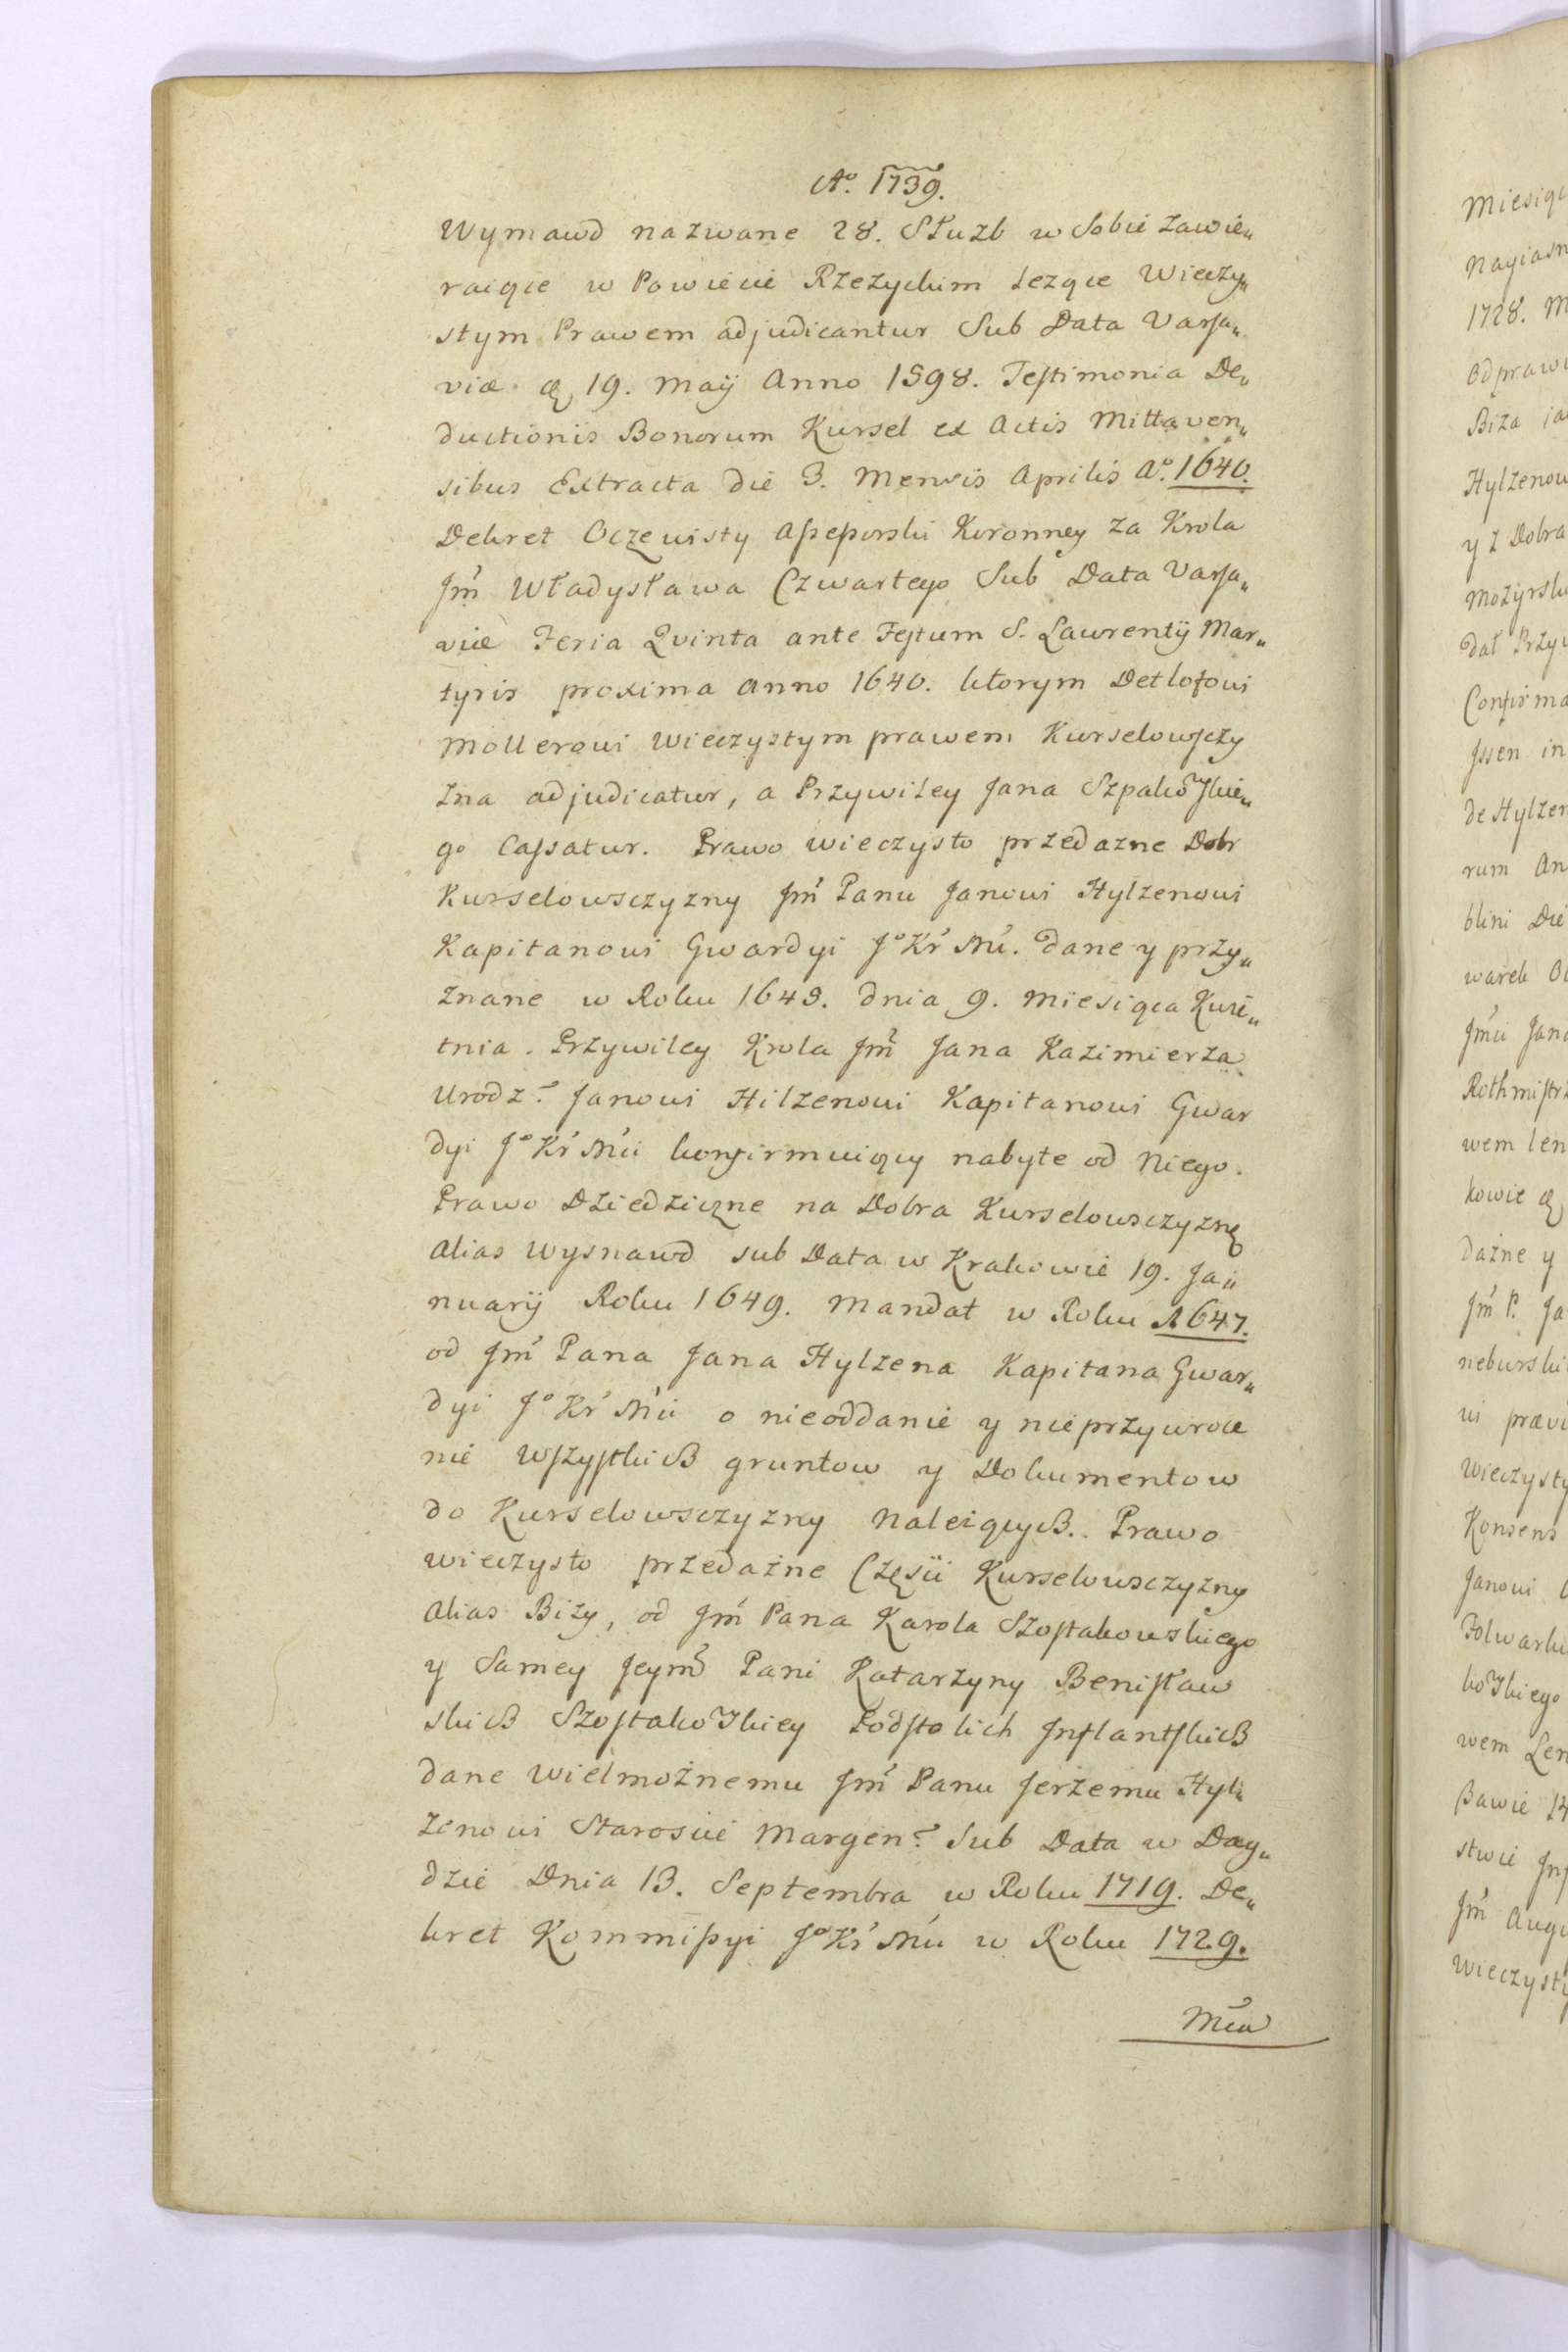 Aº. 1739.
Wymawd nazwane 28. Słuzb w Sobie zawie„
raiące w Powiecie Rzezyckim lezące Wieczy„
stym Prawem adjudicantur Sub Data Varsa„
viæ d 19. Maÿ Anno 1598. Testimonia De„
ductionis Bonorum Kursel ex Actis Mittaven„
sibus Extracta die 3. Mensis Aprilis Aº. 1640.
Dekret Oczewisty Assessorski Koronney za Krola
Jm̃ Władysława Czwartego Sub Data Varsa„
viæ Feria Qvinta ante Festum S. Laurentÿ Mar„
tyris proxima anno 1640. ktorym Detlofowi
Mollerowi wieczystym prawem Kurselowszczy
zna adjudicatur, a Przywiley Jana Szpakowskie„
go Cassatur. Prawo wieczysto przedazne Dobr
Kurselowsczyzny Jm̃ Panu Janowi Hylzenowi
Kapitanowi Gwardyi Jº Kr̃ Mci. dane y przy„
znane w Roku 1648. dnia 9. Miesiąca Kwie„
tnia. Przywiley Krola Jm̃ Jana Kazimierza
Urodz? Janowi Hilzenowi Kapitanowi Gwar
dyi Jº Kr̃ Mci konfirmuiący nabyte od Niego.
Prawo Dziedziczne na Dobra Kurselowsczyznę
alias Wysnawd sub Data w Krakowie 19. Ja„
nuarÿ Roku 1649. Mandat w Roku 1647.
od Jm̃ Pana Jana Hylzena Kapitana Gwar„
dyi Jº Kr̃ Mci o nieoddanie y nieprzywroce
nie wszystkich gruntow y Dokumentow
do Kurselowsczyzny naleiących. Prawo
wieczysto przedażne Części Kurselowsczyzny
alias Bizy, od Jm̃ Pana Karola Szostakowskiego
y Samey Jeym̃ Pani Katarzyny Benisław
skich Szostakowskiey Podstolich Inflantskich
dane Wielmożnemu Jm̃ Panu Jerzemu Hyl„
zenowi Staroscie Margen? Sub Data w Dag„
dzie Dnia 13. Septembra w Roku 1719. De„
kret Kommissyi Jº Kr̃ Mci w Roku 1729.
Mca
Miesiąc
Nayiasn
1728. M
Odprawi
Biza ia
Hylzenow
y z Dobra
Mozyrsk
dał Przy
Confirma
Jssen in
de Hylzen
rum An
blini Die
warek
Jm̃ci Jan
Rothmistrz
wem len
kowie d
dażne y
Jm̃ P. Ja
neburski
wi prawe
Wieczysty
Konsens
Janowi
Folwark
kowskiego
wem Len
stwie Inf
Jm̃ Augu
Wieczysty